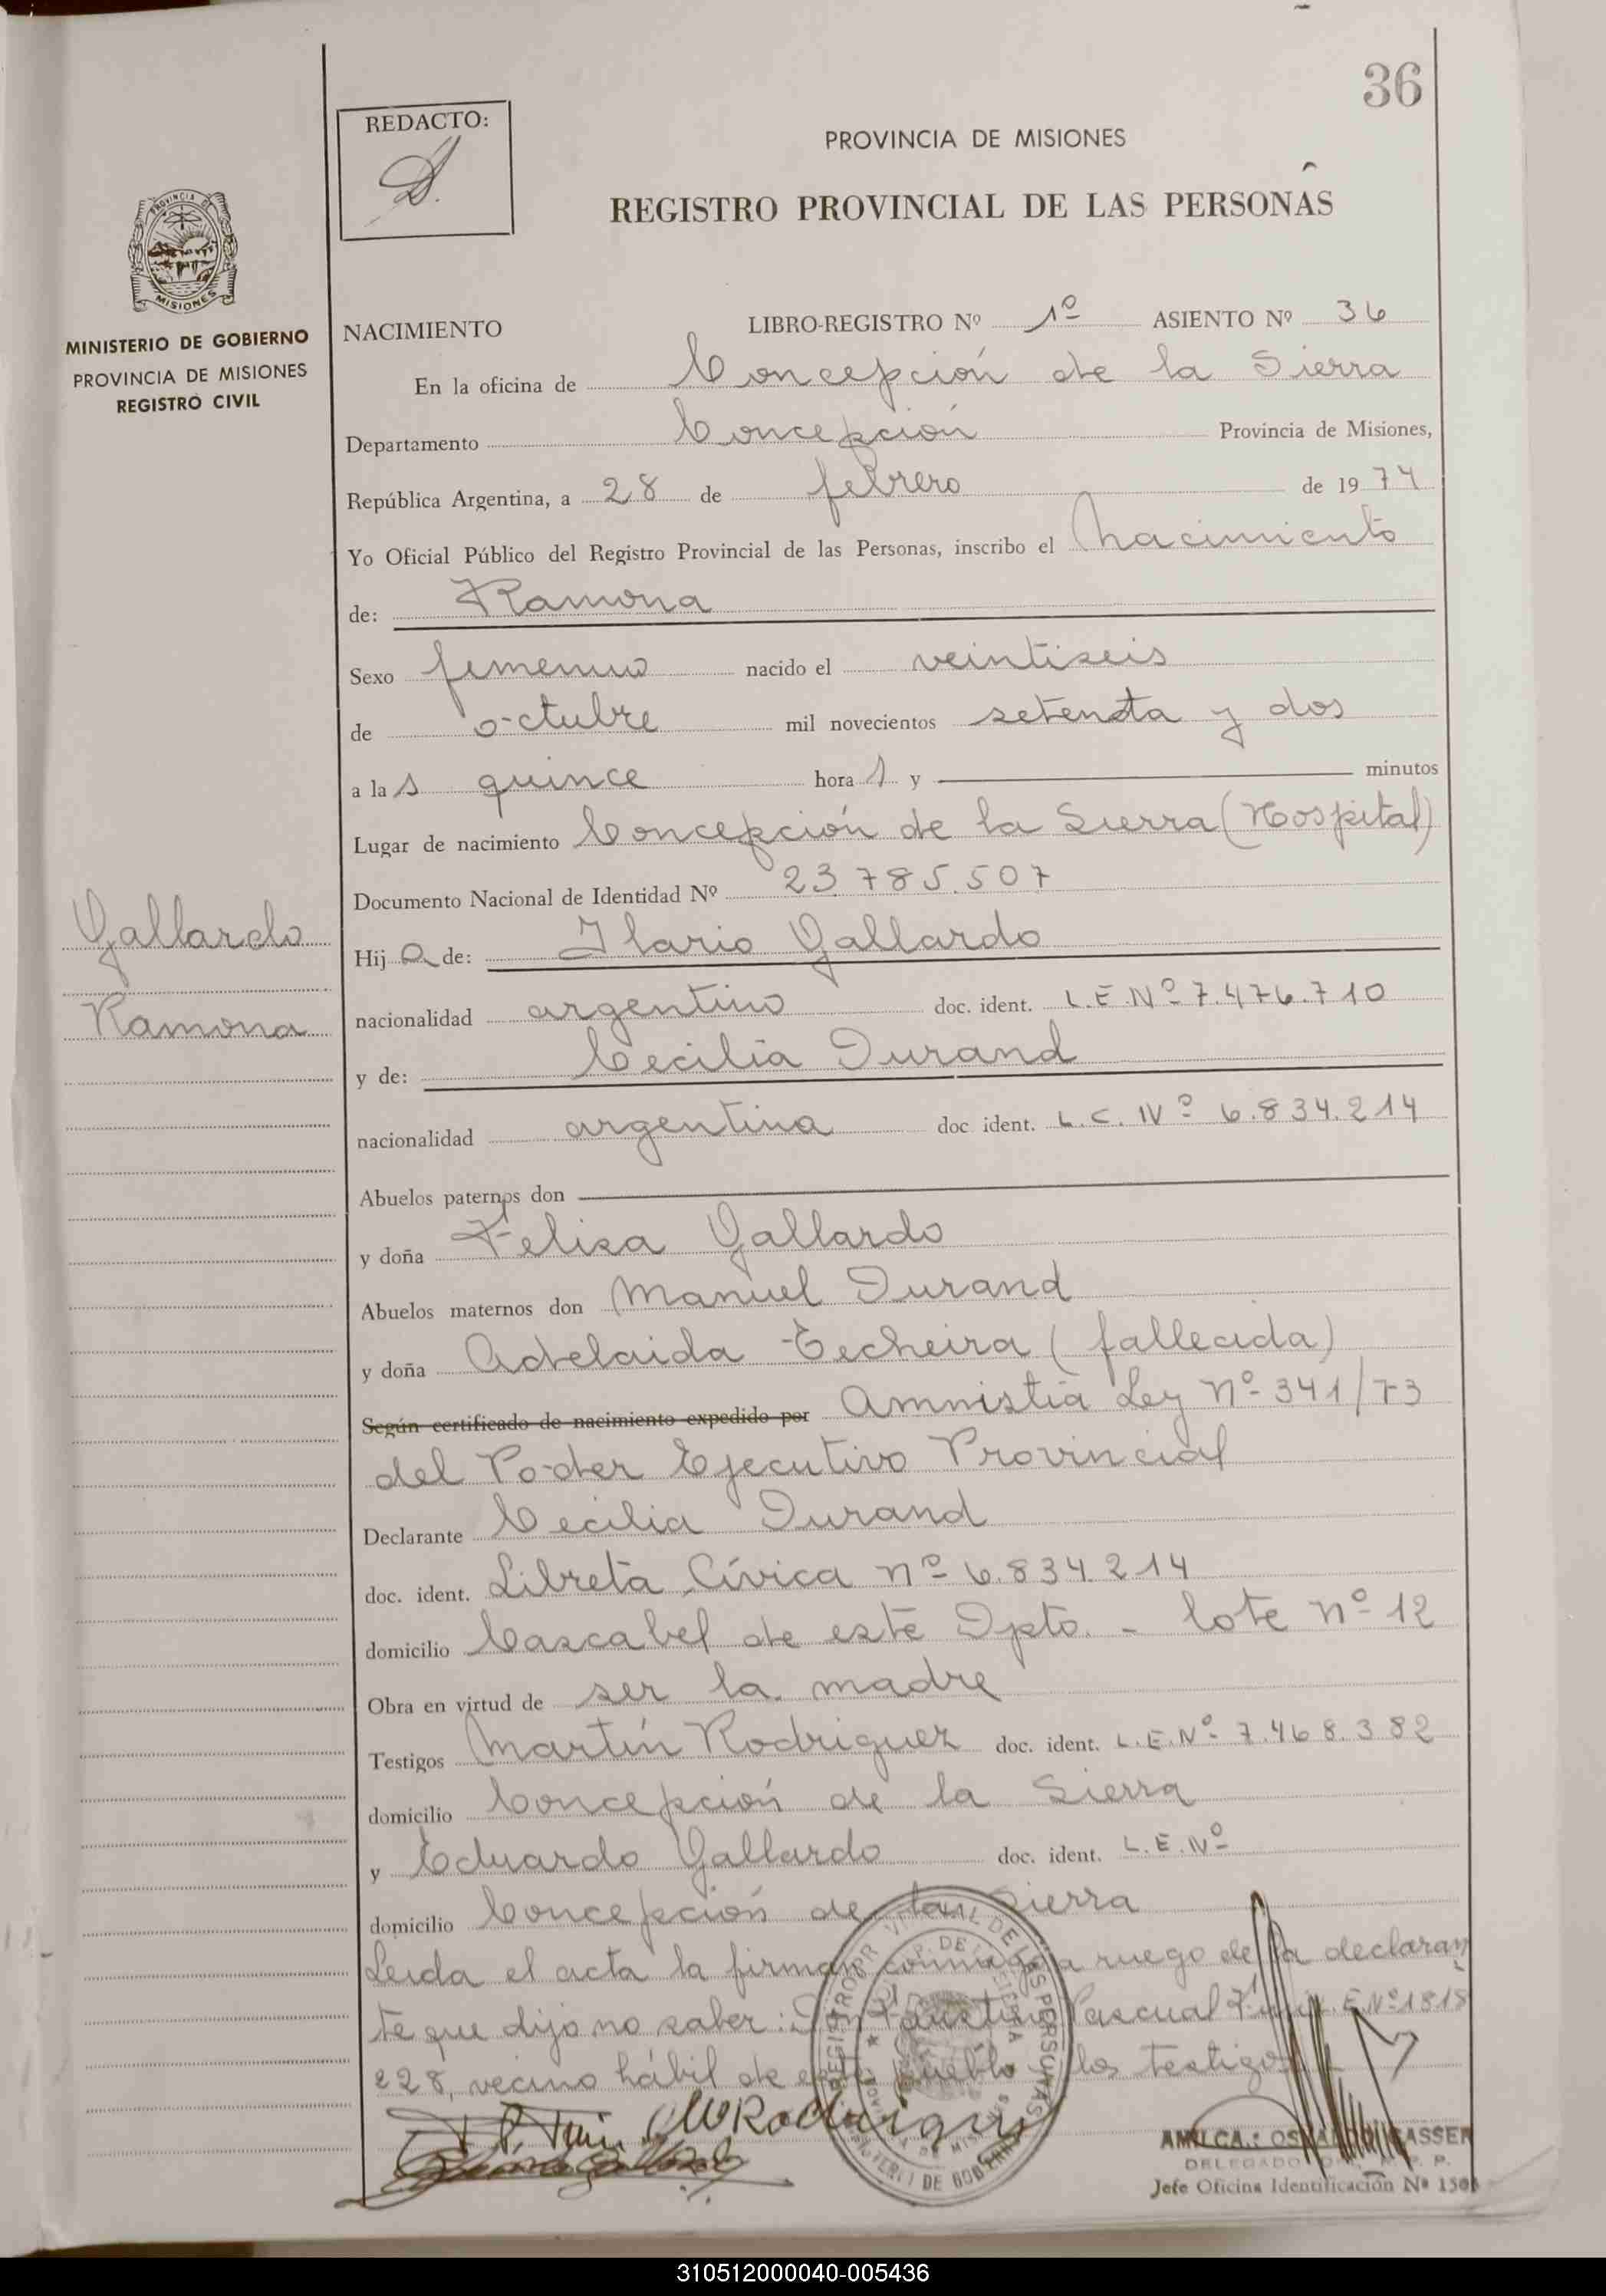 36
REDACTO:
PROVINCIA DE MISIONES
REGISTRO PROVINCIAL DE LAS PERSONAS
PROVINCIA DE
MISIONES
MINISTERIO DE GOBIERNO
PROVINCIA DE MISIONES
REGISTRO CIVIL
NACIMIENTO LIBRO-REGISTRO Nº 1º ASIENTO Nº 36
En la oficina de Concepción de la Sierra
Departamento Concepción Provincia de Misiones,
República Argentina, a 28 de febrero de 1974
Yo Oficial Público del Registro Provincial de las Personas, inscribo el nacimiento
de: Ramona
Sexo femenino nacido el veintiseis
de octubre mil novecientos setenta y dos
a las quince hora s y minutos
Lugar de nacimiento Concepción de la Sierra (Hospital)
Documento Nacional de Identidad Nº 23.785.507
Gallardo
Ramona
Hija de: Ilario Gallardo
nacionalidad argentino doc. ident. L.E.Nº 7.476.710
y de: Cecilia Durand
nacionalidad argentina doc. ident. L.C. Nº 6.834.214
Abuelos paternos don
y doña Felisa Gallardo
Abuelos maternos don Manuel Durand
y doña Adelaida Techeira (fallecida)
Según certificado de nacimiento expedido por Amnistia Ley Nº 341/73
del Poder Ejecutivo Provincial
Declarante Cecilia Durand
doc. ident. Libreta Cívica nº 6.834.214
domicilio Cascabel de este Dpto. - lote nº 12
Obra en virtud de ser la madre
Testigos Martín Rodriguez doc. ident. L.E.Nº 7.468.382
domicilio Concepción de la Sierra
y Eduardo Gallardo doc. ident. L.E.Nº
domicilio Concepción de la Sierra
Leida el acta la firman conmigo a ruego de la declaran
te que dijo no saber: Don Faustino Pascual L.E.Nº 1818
228, vecino hábil de este pueblo los testigos
MRodriguez
DELEGADO
Jefe Oficina Identificación Nº 150
310512000040-005436